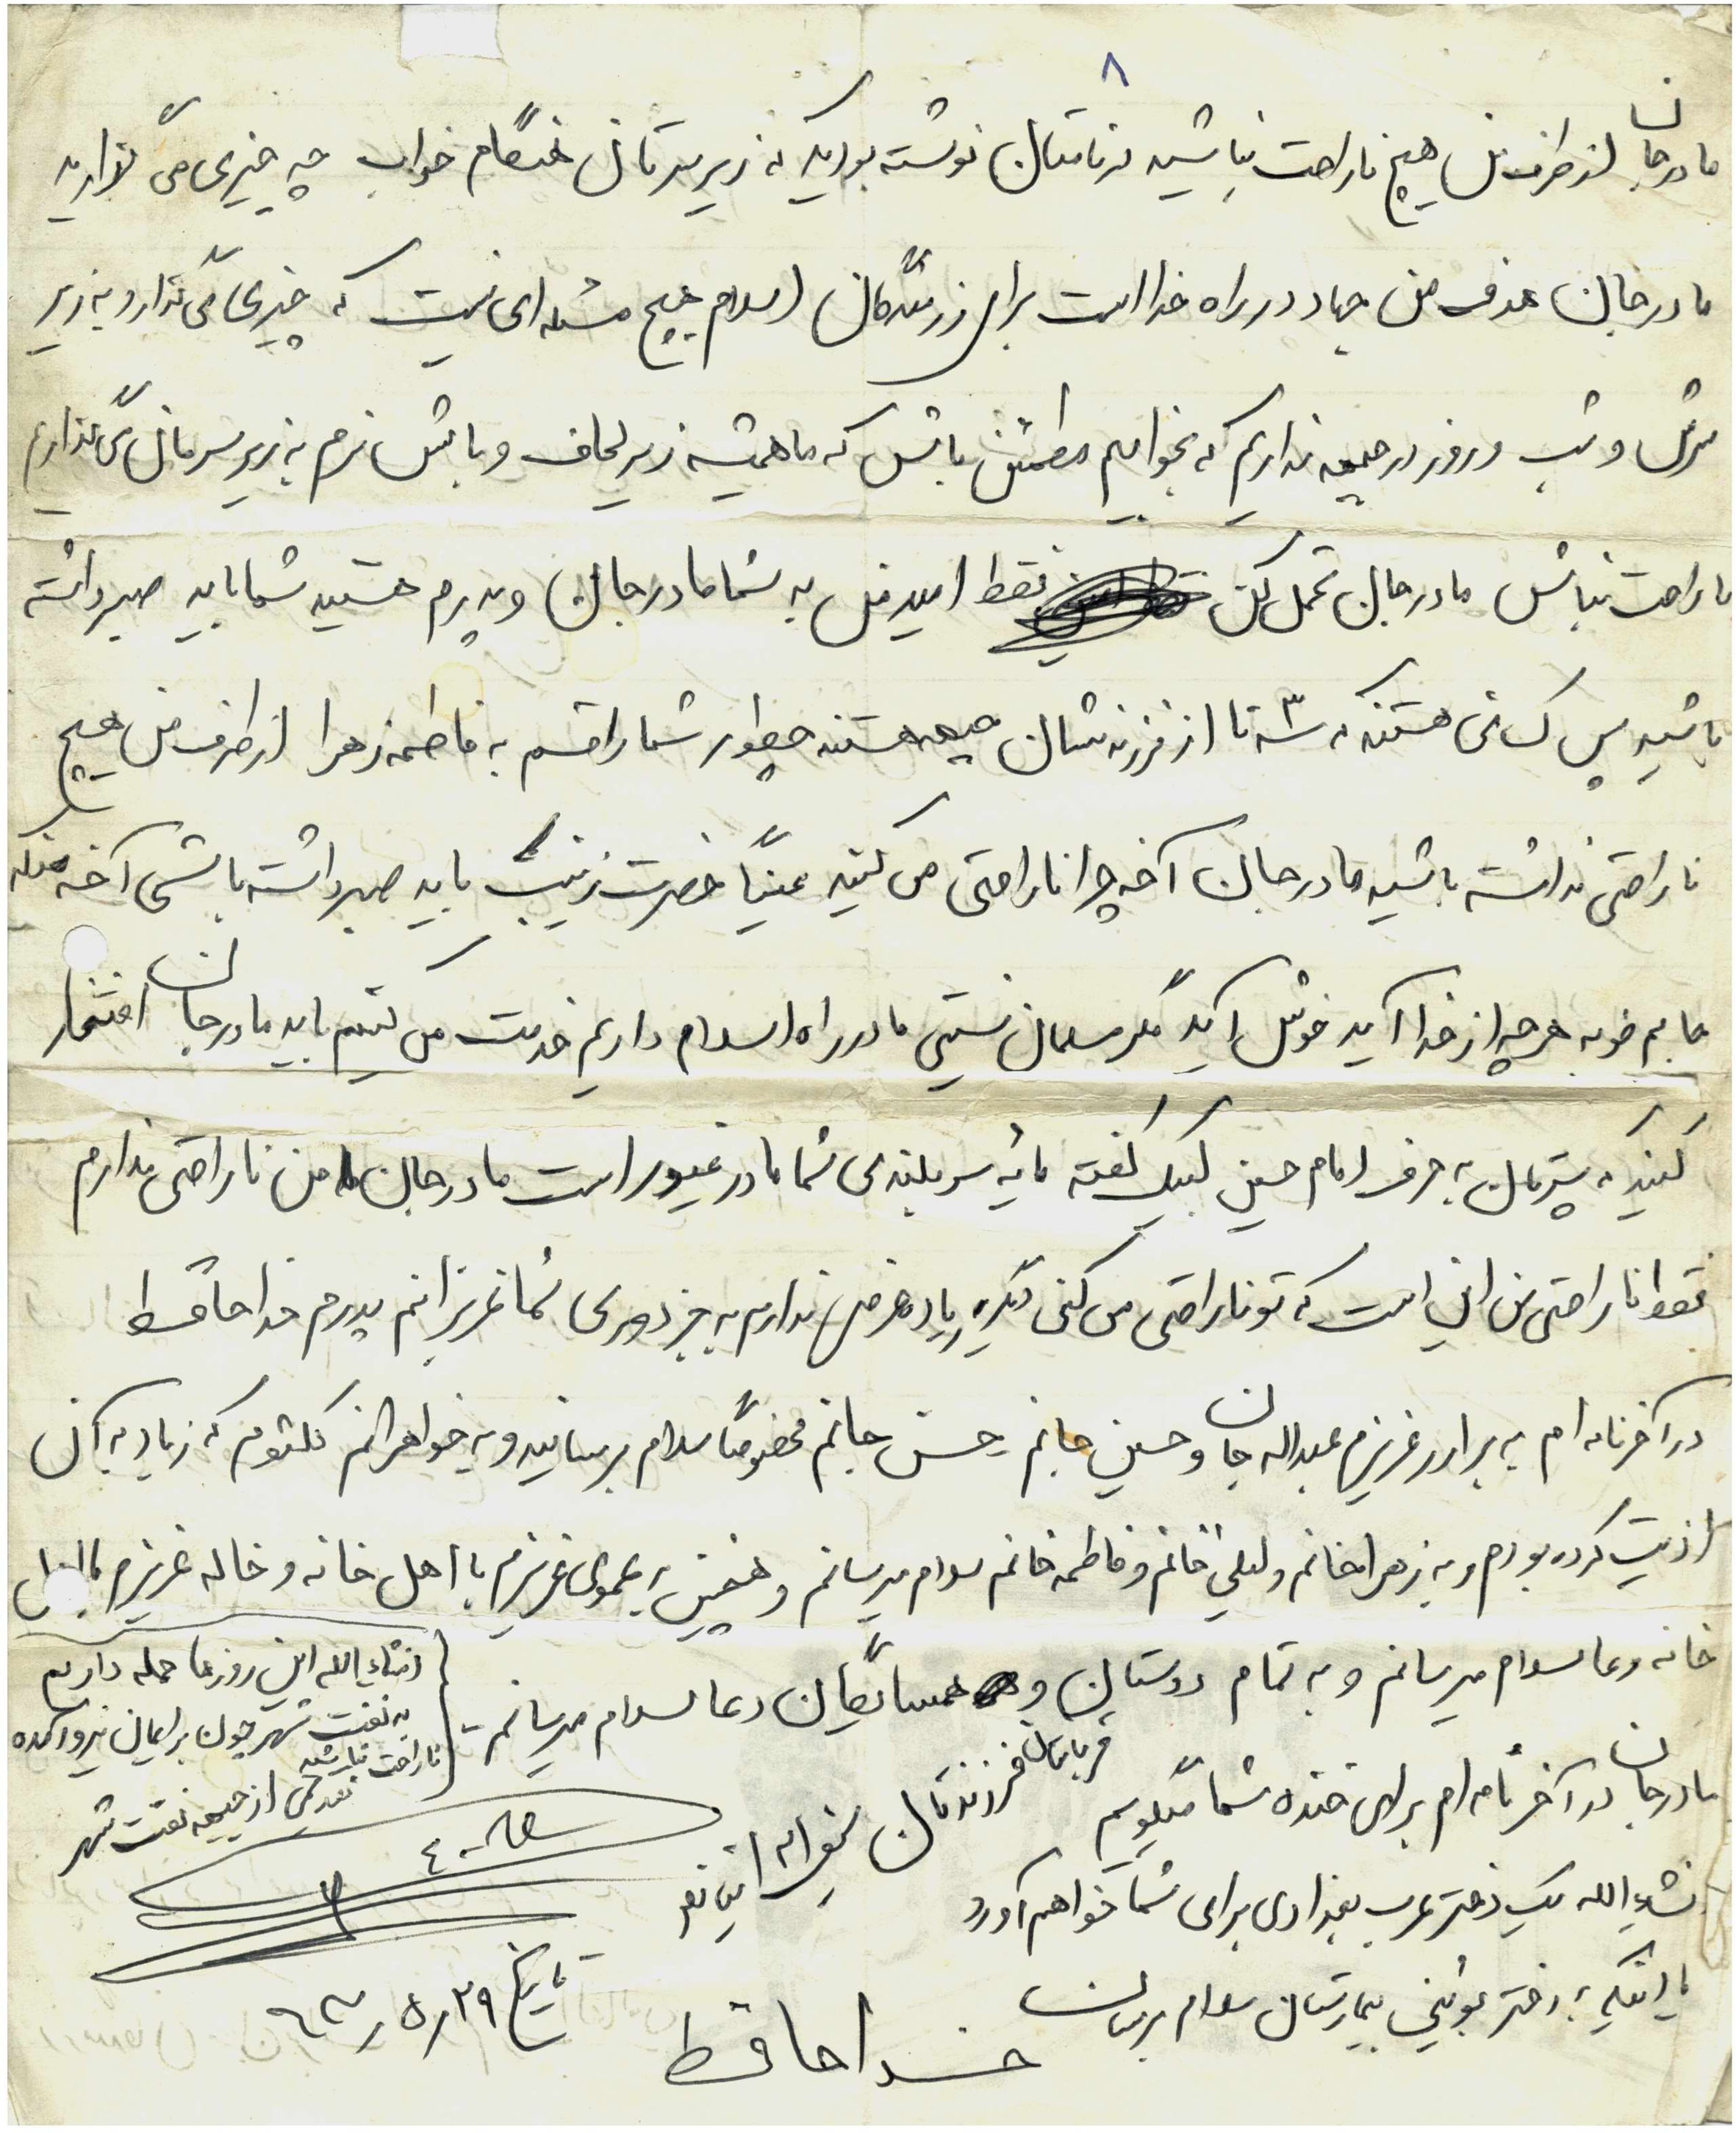 ۸
مادرجان از طرف من هیچ ناراحت نباشید در نامتان نوشته بودید که زیر سرتان هنگام خواب چه چیزی می گذارید
مادرجان هدف من جهاد در راه خدا است برای رزمندگان اسلام هیچ مسئله ای نیست که چیزی می گذارد به زیر
سرش و شب و روز در جبهه نداریم که بخوابیم مطمئن باش که ما همیشه زیر لحاف و بالش نرم به زیر سرمان می گذاریم
ناراحت نباش مادرجان تحمل کن فقط امید من به شما مادرجان و پدرم هستید شما باید صبر داشته
باشید پس کسانی هستند که ۳ تا از فرزندشان جبهه هستند چطور شما را قسم به فاطمه زهرا از طرف من هیچ
ناراحتی نداشته باشید مادرجان آخه چرا ناراحتی می کنید عیناً حضرت زینب باید صبر داشته باشی آخه منکه
جایم خوبه هرچه از خدا آید خوش آید مگر مسلمان نیستی ما در راه اسلام داریم خدمت می کنیم باید مادرجان افتخار
کنید که پسرمان به حرف امام حسین لبیک گفته مایه سربلندی شما مادر غیور است مادرجان من ناراحتی ندارم
فقط ناراحتی من این است که تو ناراحتی می کنی دیگر زیاد عرضی ندارم به جز دوری شما عزیزانم پدرم خداحافظ
در آخر نامه ام به برادر عزیزم عبداله جان و حسین جانم حسن جانم مخصوصاً سلام برسانید و به خواهرانم کلثوم که زیاد به آن
اذیت کرده بودم و به زهرا خانم و لیلی خانم و فاطمه خانم سلام میرسانم و همچنین به عموی عزیزم با اهل خانه و خاله عزیزم با اهل
خانه دعا سلام میرسانم و به تمام دوستان و همسایگان دعا سلام میرسانم
انشاءالله این روزها حمله داریم
به نفت شهر چون برایمان نیرو آمده
ناراحت نباشید
از جبهه نفت شهر
مادرجان در آخر نامه ام برای خنده شما میگویم
قربانتان فرزندتان
انشاءالله یک دختر عرب بغدادی برای شما خواهم آورد
یا اینکه به دختر بیمارستان سلام برسان
خداحافظ
تاریخ ۶۳/۵/۲۹